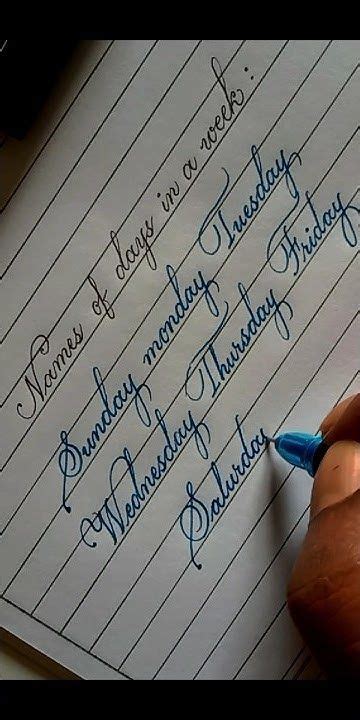 Names of days in a week:
Sunday monday Tuesday
Wednesday Thursday Friday
Saturday